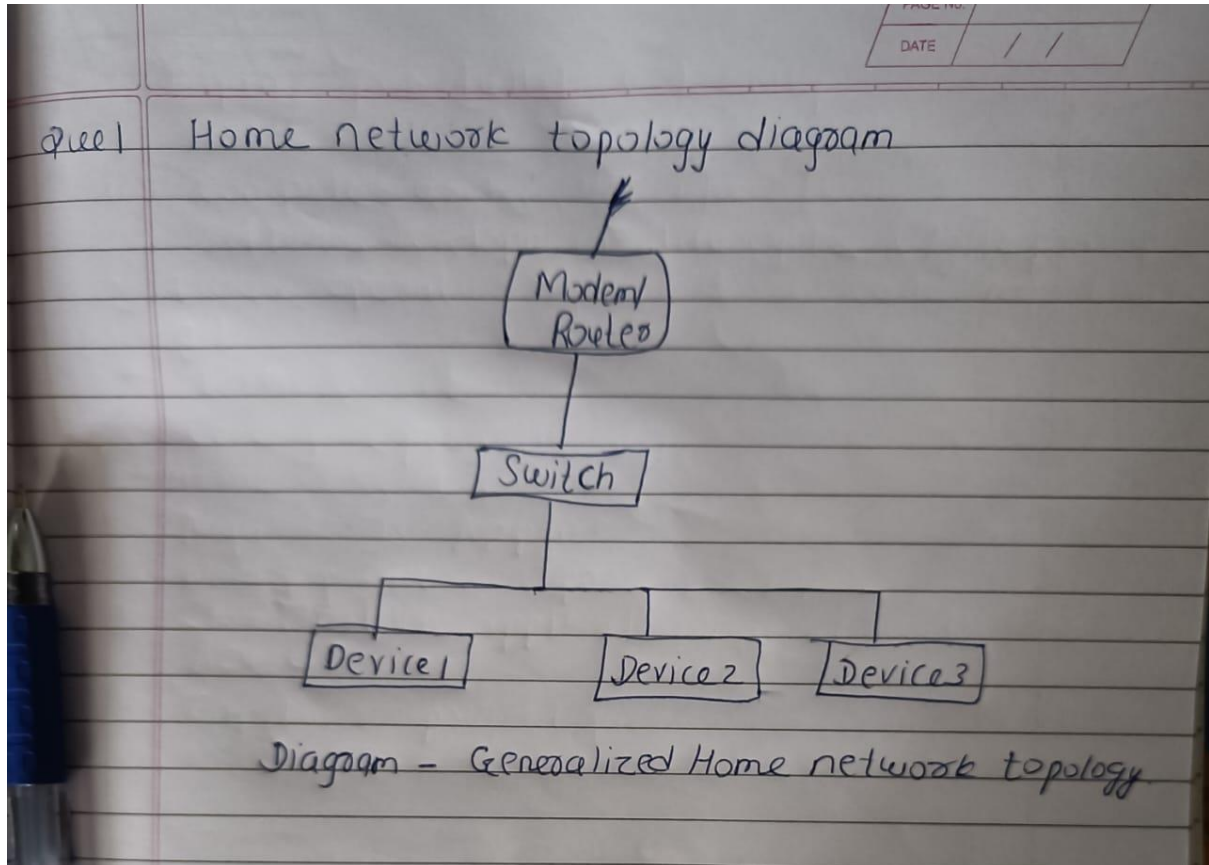 DATE / /
Que1 Home network topology diagram
Modem/
Router
Switch
Device1 Device2 Device3
Diagram - Generalized Home network topology